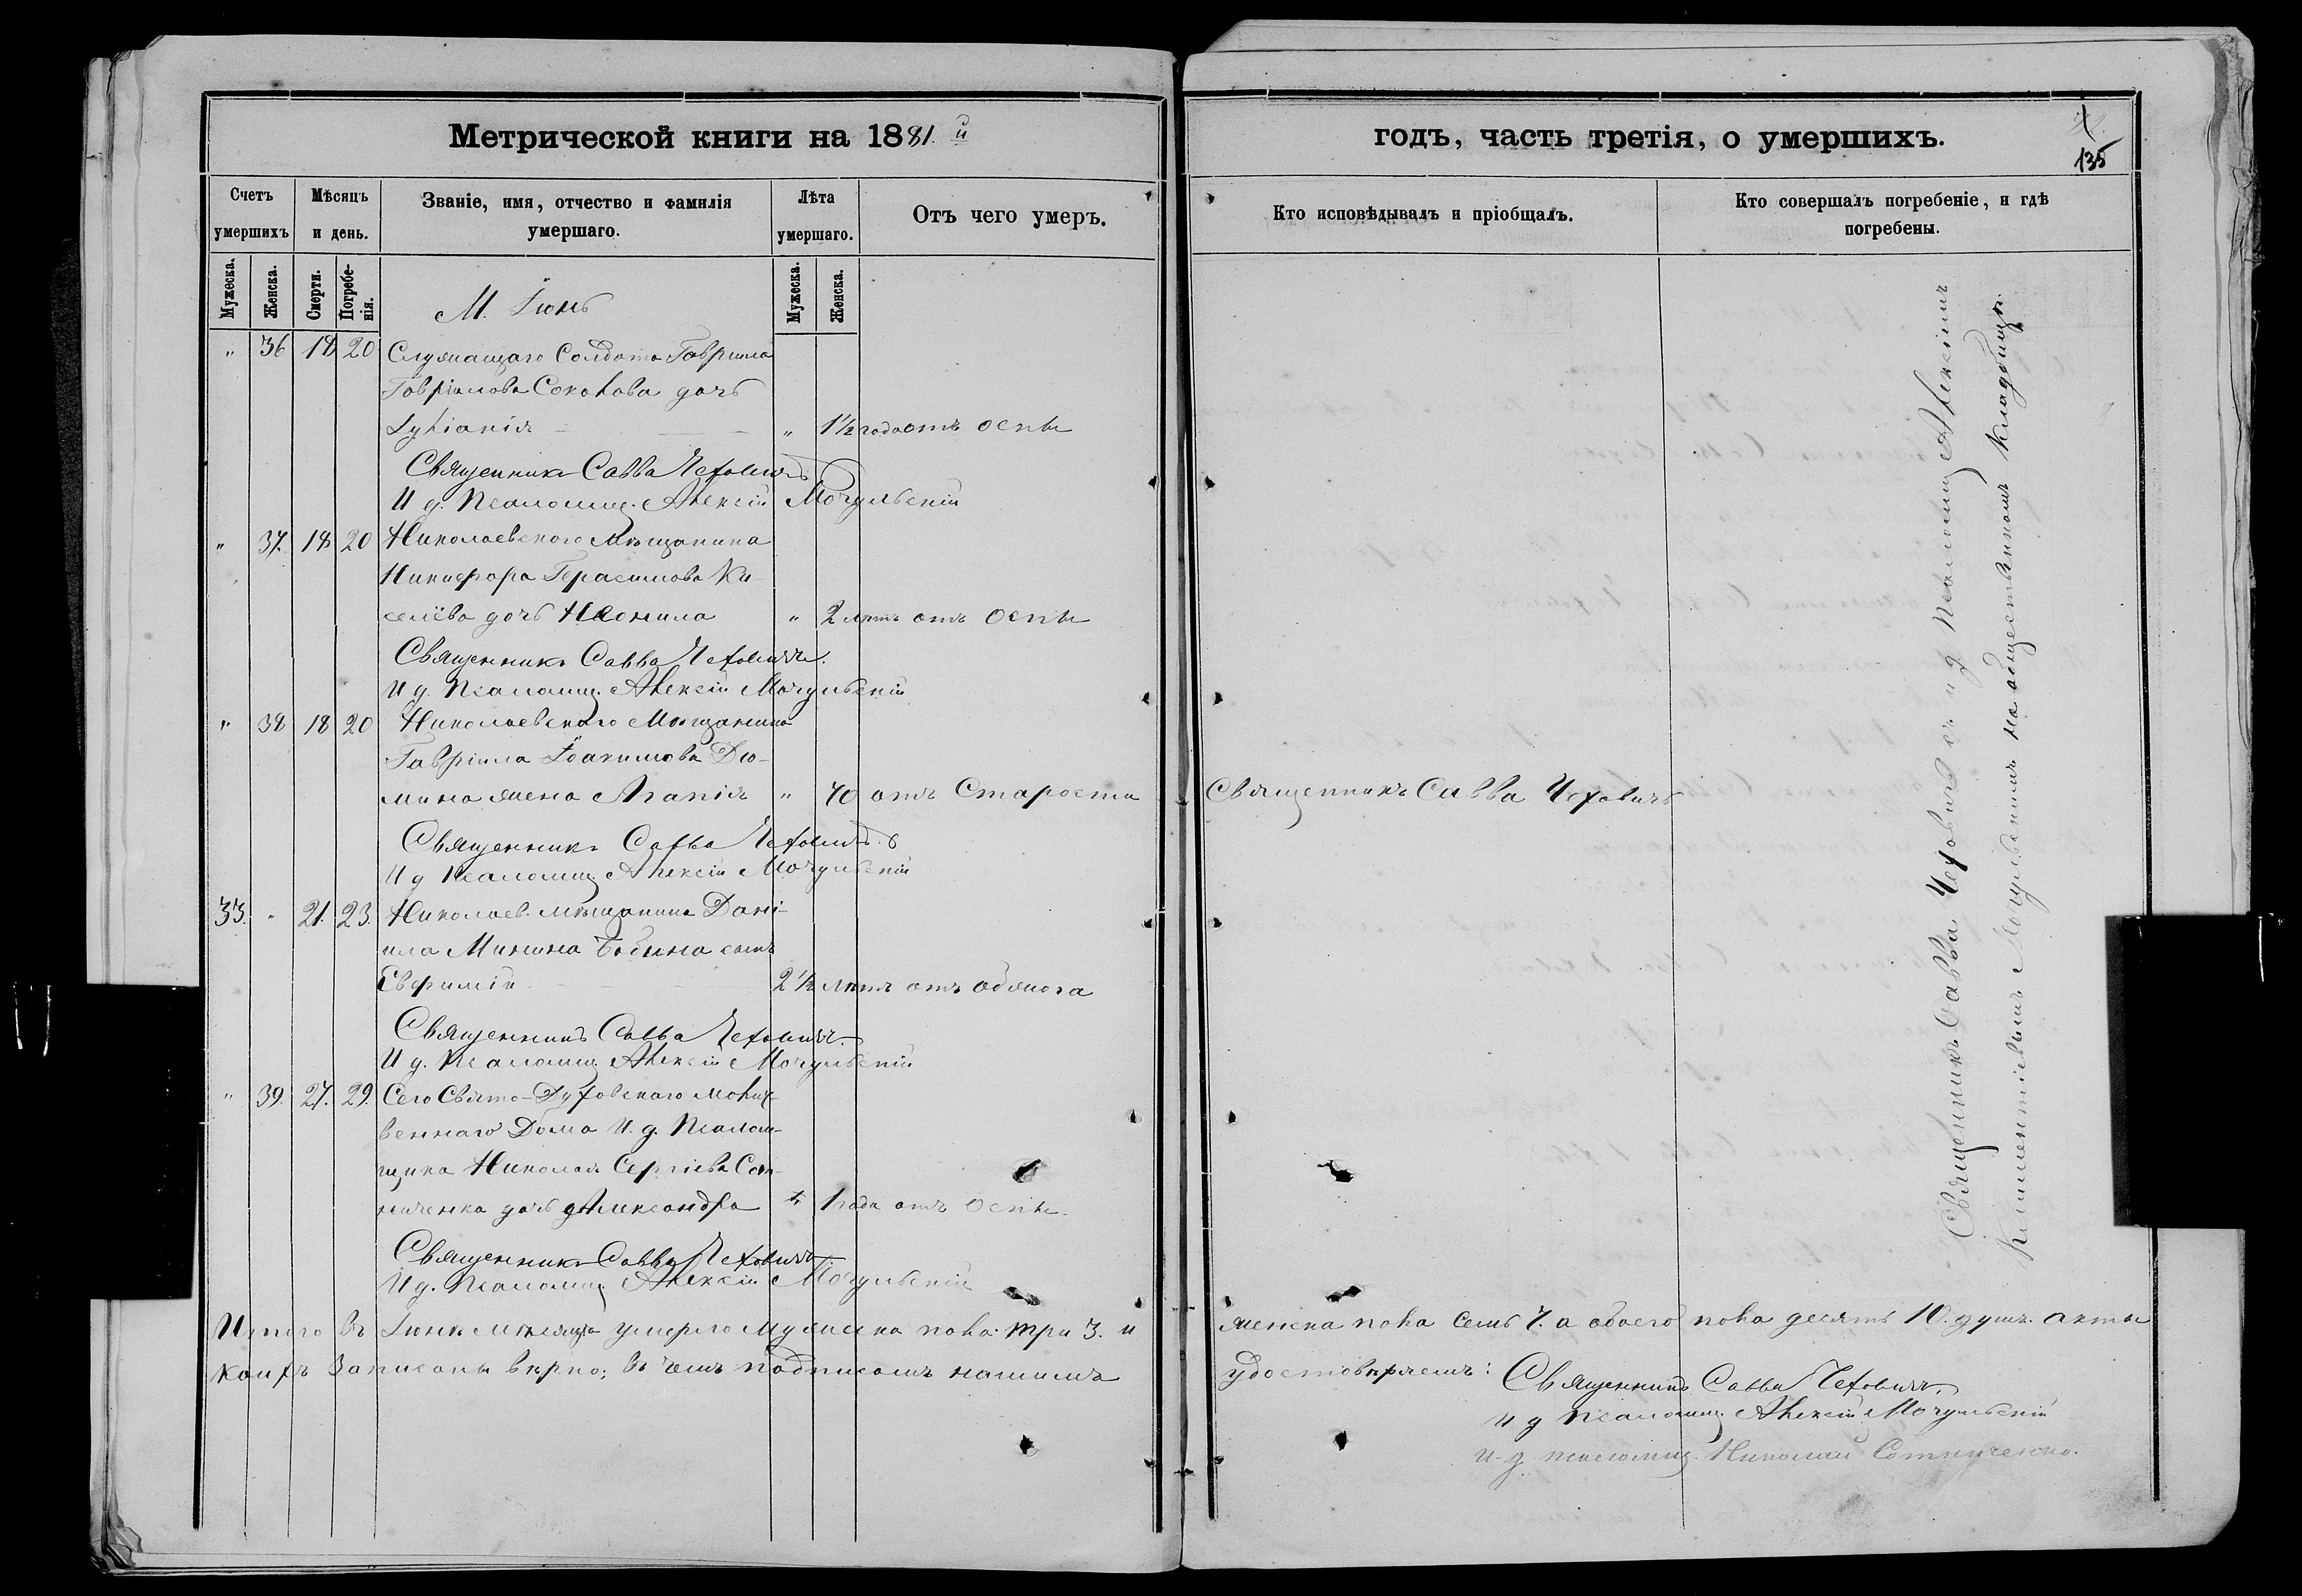 Метрической книги на 1881 й
годъ, часть третія, о умершихъ.
135
Счетъ умершихъ
Мѣсяцъ и день.
Званіе, имя, отчество и фамилія умершаго.
Лѣта умершаго.
Отъ чего умеръ.
Кто исповѣдывалъ и пріобщалъ.
Кто совершалъ погребеніе, и гдѣ погребены.
Мужеска.
Женска.
Смерти.
Погребенія.
Мужеска.
Женска.
М. Іюнь
" 36 18 20 Служащаго Солдата Гавриила
Гавріилова Соколова дочь
Іуліанія " 1½ года отъ оспы
Священникъ Савва Чеховичъ
И д. Псаломщ. Алексій Мочульскій
" 37. 18 20 Николаевскаго Мѣщанина
Никифора Герасимова Ки-
селёва дочь Неонила " 2 лѣтъ отъ Оспы
Священникъ Савва Чеховичъ.
И д. Псаломщ. Алексій Мочульскій
" 38 18 20 Николаевскаго Мѣщанина
Гавріила Іоакимова Дю-
мина жена Агапія " 70 отъ Старости Священникъ Савва Чеховичъ
Священникъ Савва Чеховичъ
И д Псаломщ Алексій Мочульскій
33. " 21. 23. Николаев. мѣщанина Дані-
ила Минина Бобина сынъ
Евфимій 2½ лѣтъ отъ обжога
Священникъ Савва Чеховичъ.
И д. Псаломщ Алексій Мочульскій
" 39. 27. 29. Сего Свято-Духовскаго молит-
веннаго Дома И. д. Псалом-
щика Николая Сергіева Сот-
ниченка дочь Александра " 1 года отъ Оспы.
Священникъ Савва Чеховичъ
И д. Псаломщ Алексій Мочульскій
Священникъ Савва Чеховичъ съ и д Псаломщ Алексіемъ
Климентіевымъ Мочульскимъ на общественномъ кладбищѣ.
Итого въ Іюнѣ мѣсяцѣ умерло мужеска пола три 3. и женска пола семь 7. а обоего пола десять 10. душъ. акты
коихъ записаны вѣрно; въ чемъ подписомъ нашимъ удостовѣряемъ: Священникъ Савва Чеховичъ.
и д псаломщ. Алексій Мочульскій
и. д. псаломщ. Николай Сотниченко.